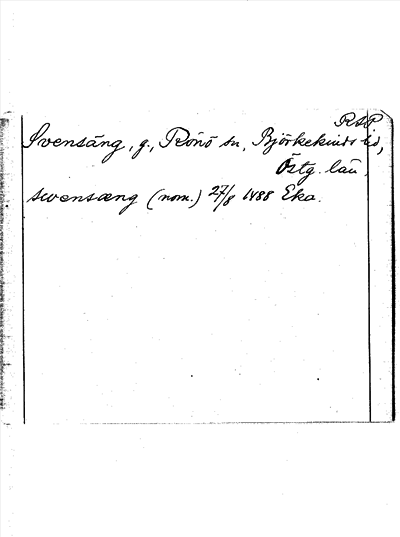 RAP
Svensäng, g., Rönö sn, Björkekinds hd,
Östg. län.
swensæng (nom.) 27/8 1488 Eka.